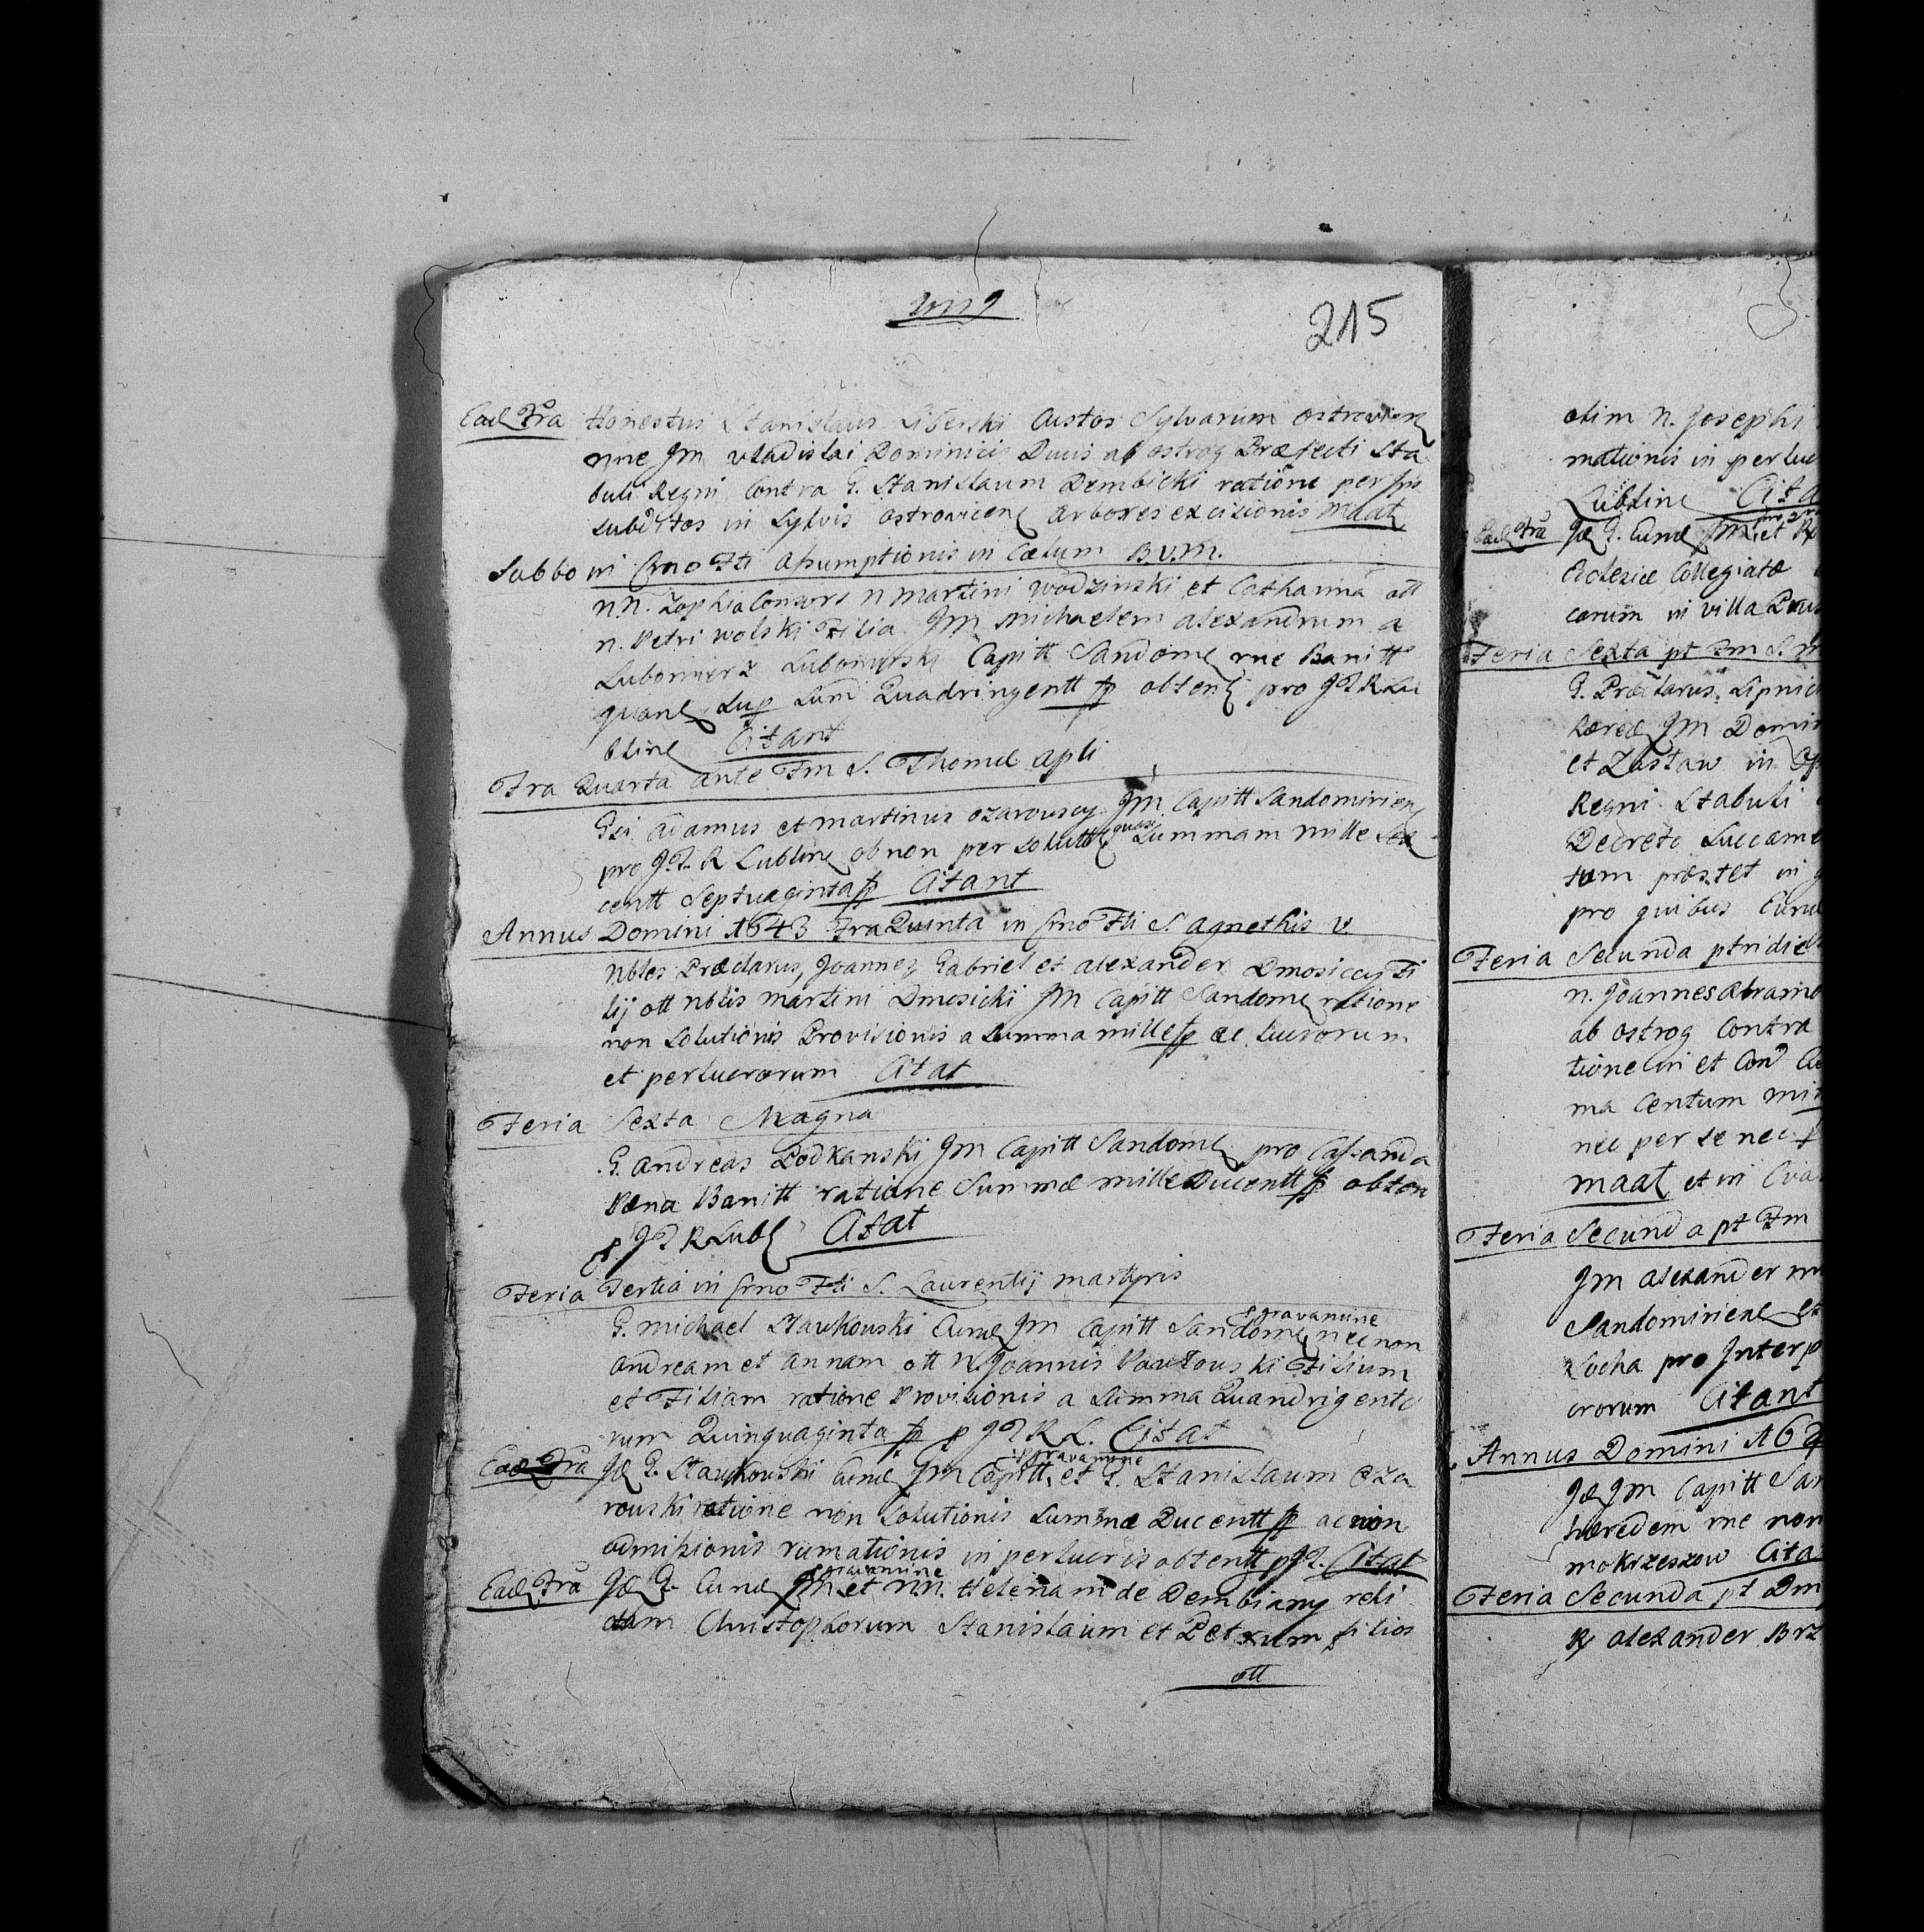 215
Ead Fra Honestus Stanislaus Liberski Custos Sylvarum Ostrovien
nne Jm vladislai Dominici Ducis ab ostrog Præfecti Sta
buli Regni Contra G. Stanislaum Dembicki ratione per
subditos in Sylvis ostrovicen arbores excisionis maat
Sabbo in Crno Fti Assumptionis in Cœlum B.V.M.
nn. Zophia Consors n Martini wodzinski et Catharina ott
n. Petri wolski Filia Jm Michaelem alexandrum a
Lubomierz Lubomirski Capitt Sandomi rne Banitt
quane sup Sum Quadringentt fp obtent pro JTRLu
bline Citant
Fra Quarta ante Fm S. Thomæ apli
Gsi adamus et martinus ozarouscy Jm Capitt Sandomirien
pro J.T. R Lublin ob non per solutt quasi Summam mille sex
centt septuaginta fp Citant
Annus Domini 1643 Fra Quinta in Crno Fti S. agnethis v.
nbles Præclarus, Joannes, Gabriel et alexander Dmosiccy Fi
lij ott nblis martini Dmosicki Jm Capitt Sandome ratione
non solutionis Provisionis a summa mille fp ac lucrorum
et perlucrorum Citat
Feria Sexta Magna
G. andreas Podkanski Jm Capitt Sandome pro Cassanda
Pæna Banitt ratione Summæ mille Ducentt fp obten
p JT R Lubl Citat
Feria Tertia in Crno Fti S. Laurentij martyris
G. michael Starkouski Cume Jm Capitt Sandome gravamine necnon
andream et annam ott n. Joannis Paulouski Filium
et Filiam ratione Provisionis a summa Quandrigento
rum Quinquaginta fp p JTRL. Citat
Ead Fra Jd G. Starkouski Cume Jm Capitt gravamine et G. Stanislaum oza
rouski ratione non solutionis summæ Ducentt fp ac non
admissionis rumationis in perlucris obtentt p JT. Citat
Ead Fra Jd G. Cume Jm gravamine et nn. Helenam de Dembiany reli
ctam Christophorum Stanislaum et Petrum filios
ott
olim n. Josephi
mationis in perluc
Lubline Cita
Ead Fra Jd G. Cume Jm et
Eclesiæ Collegiatæ
carum in villa
Feria Sexta pt Fm S.
G. Præclarus Lipnic
Jm Domin
et Zaslaw in
Regni Stabuli
Decreto Succame
tum præstet in
pro quibus
Feria Secunda ptridie
n. Joannes abramo
ab ostrog Contra
tione
ma Centum
nec per se nec
maat et in
Feria Secunda pt Fm
Jm alexander
Sandomirien et
Socha pro Interp
crorum Citant
Annus Domini 16
Jd Jm Capitt San
hæredem rne non
mokrzeszow Cita
Feria Secunda pt Dm
R alexander Brz